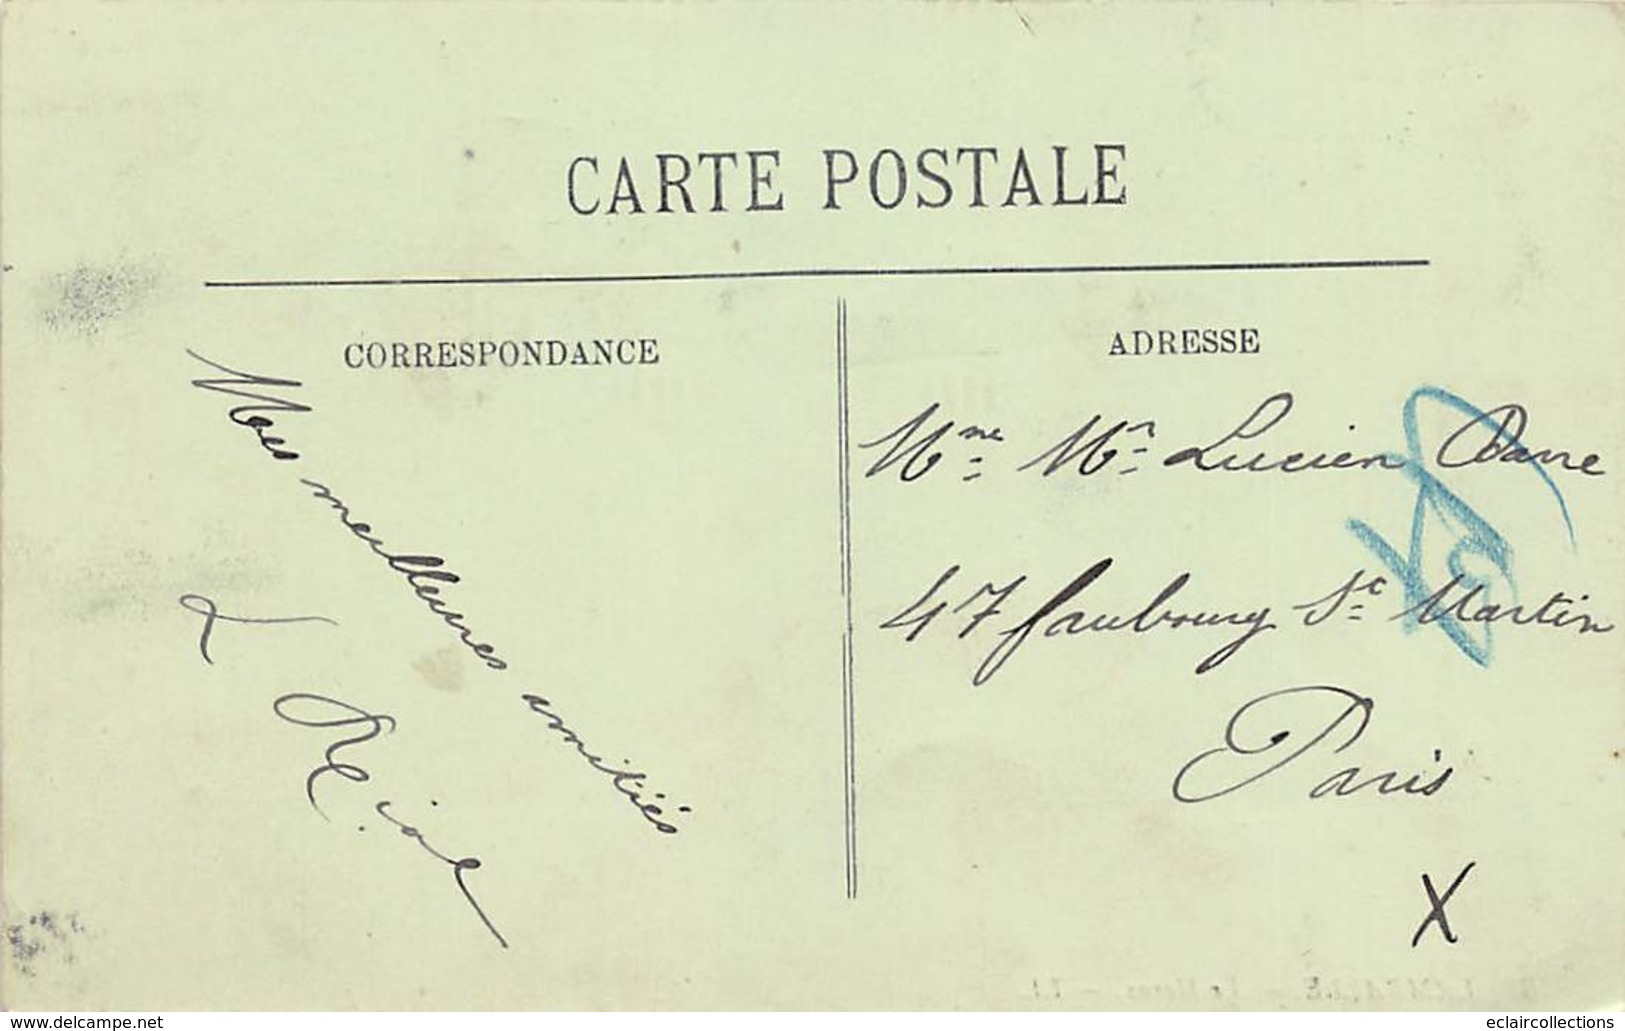 CARTE POSTALE
CORRESPONDANCE
ADRESSE
Mes meilleures amitiés
L
Mme Mr Lucien
47 faubourg St Martin
Paris
X
www.delcampe.net
eclaircollections